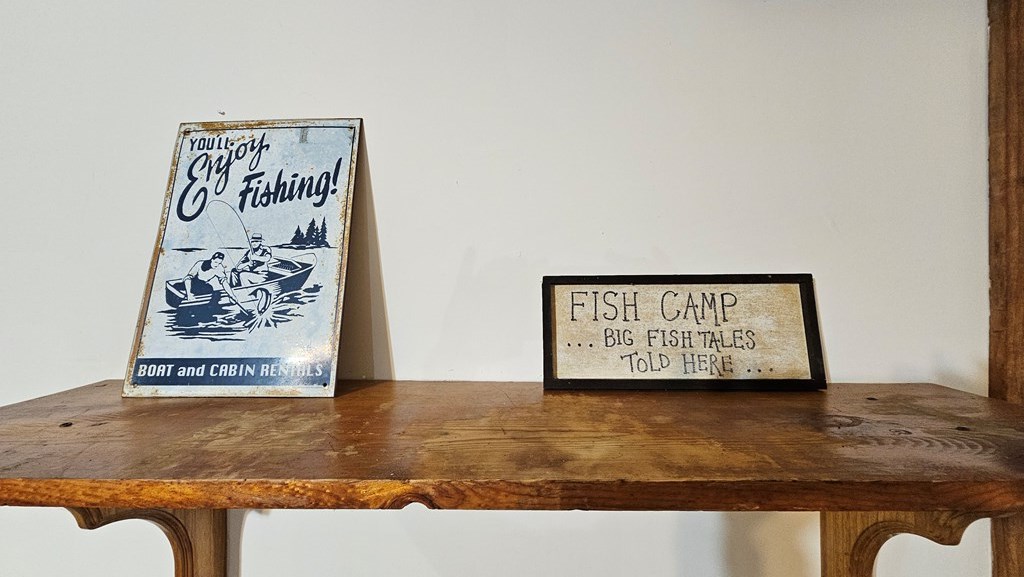 YOU'LL
Enjoy
Fishing!
BOAT and CABIN RENTALS
FISH CAMP
... BIG FISH TALES
TOLD HERE ...